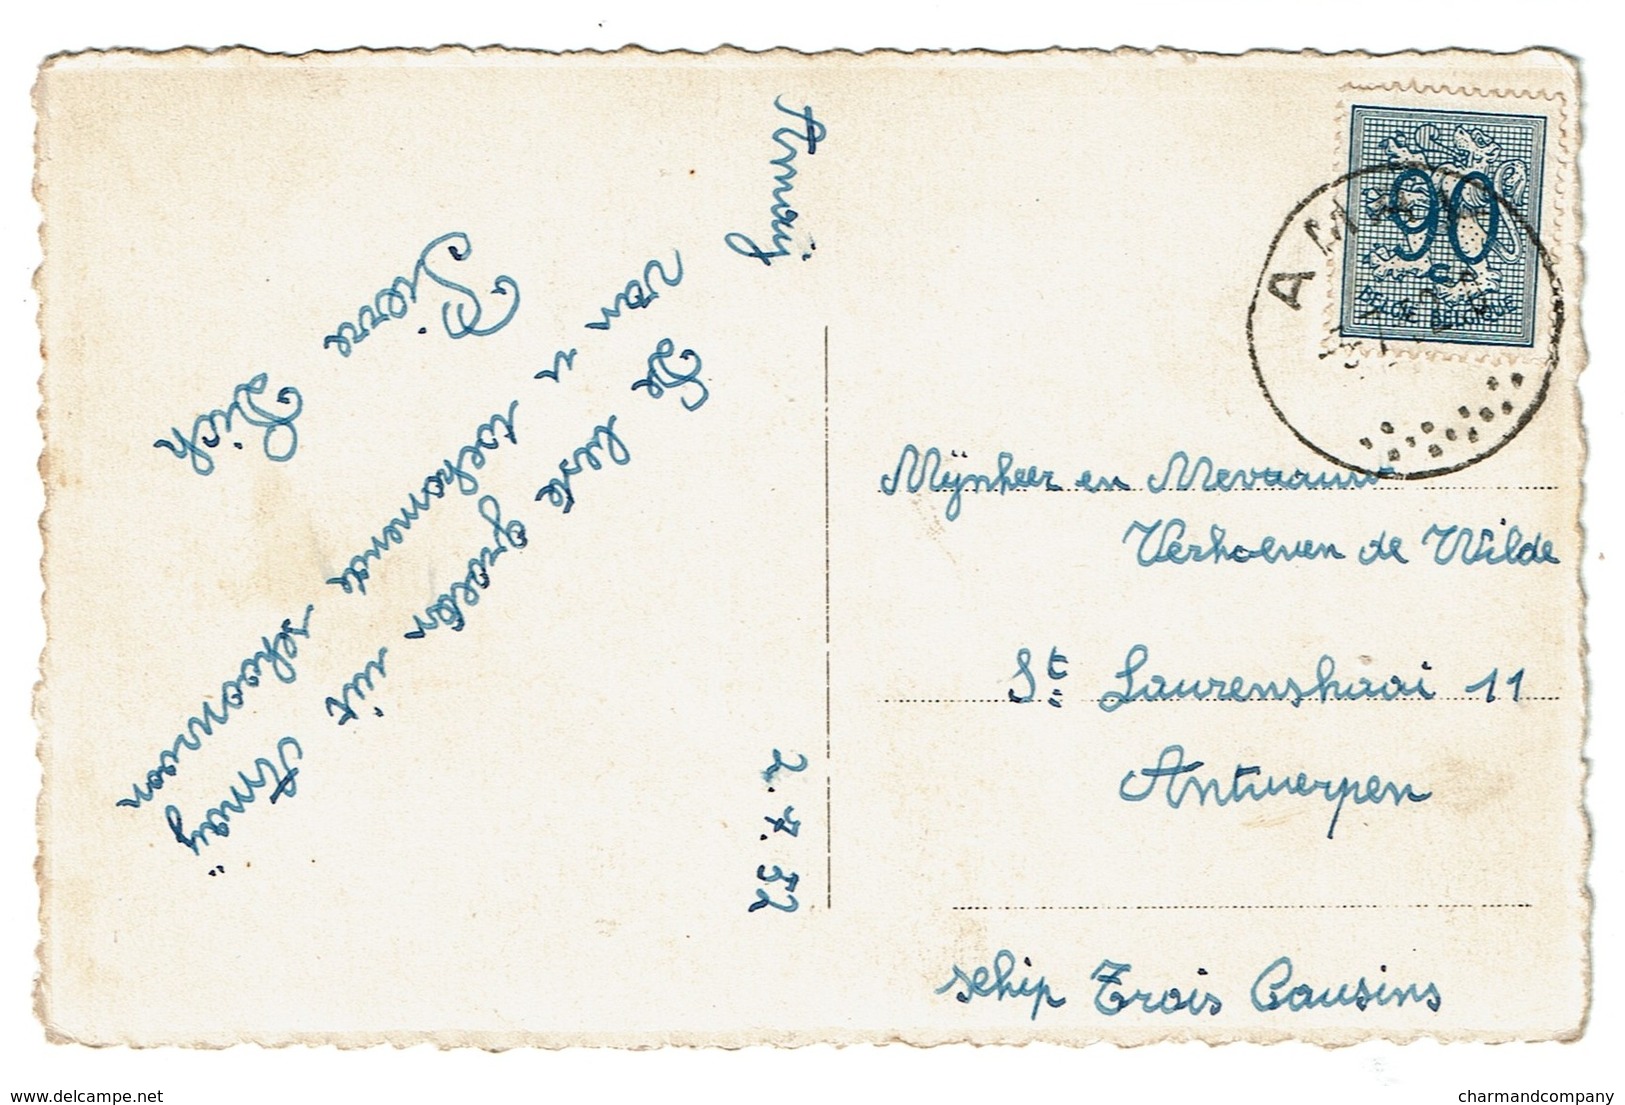 Amaij
2.7.52
De beste groeten uit Amaij
van u toekomende schoonzoon
Pierre Sich
90
C
BELGIE BELGIQUE
AMAY
Mijnheer en Mevrauw
Verhoeven de Wilde
St Laurenskaai 11
Antwerpen
schip Trois Cousins
delcampe.net
charmandcompany